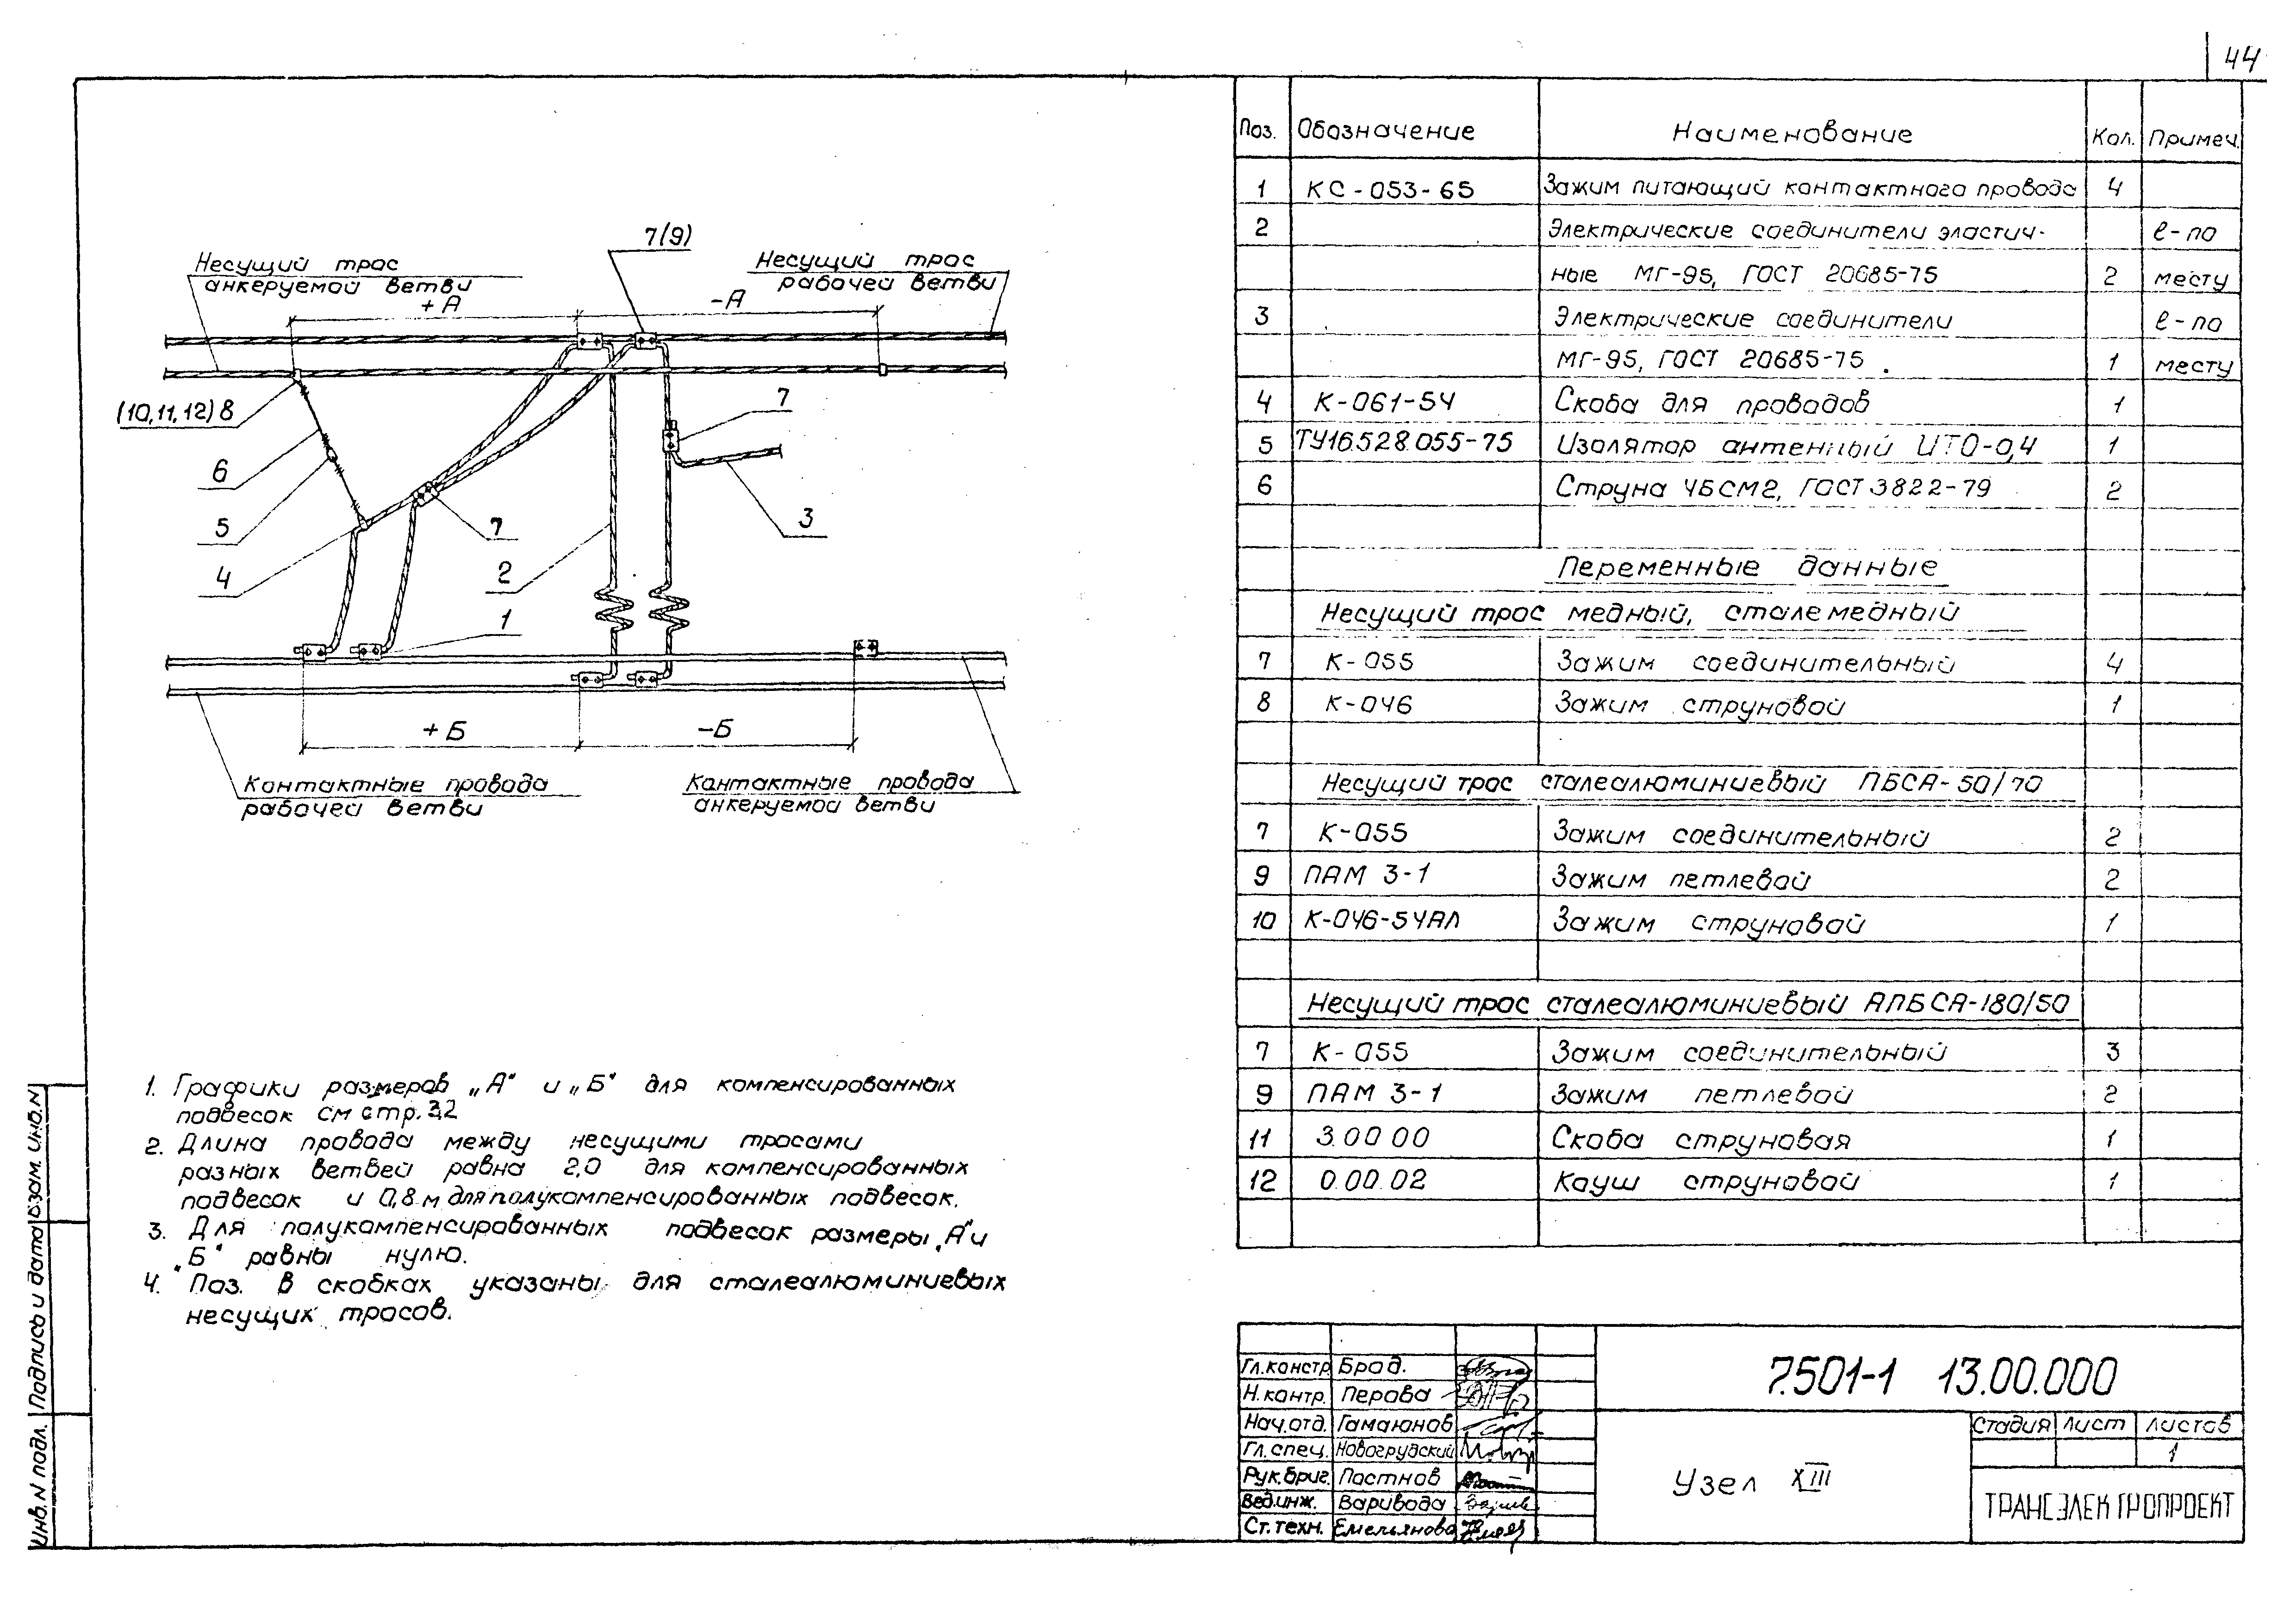 44
Несущий трос
анкеруемой ветви
+А
7(9)
-А
Несущий трос
рабочей ветви
(10,11,12) 8
7
6
5
7
3
4
2
1
+Б
-Б
Контактные провода
рабочей ветви
Контактные провода
анкеруемой ветви
1. Графики размеров „А" и „Б" для компенсированных
подвесок см стр. 32
2. Длина провода между несущими тросами
разных ветвей равна 2,0 для компенсированных
подвесок и 0,8 м для полукомпенсированных подвесок.
3. Для полукомпенсированных подвесок размеры „А" и
„Б" равны нулю.
4. Поз. в скобках указаны для сталеалюминиевых
несущих тросов.
Поз. Обозначение Наименование Кол. Примеч.
1 КС-053-65 Зажим питающий контактного провода 4
2 Электрические соединители эластич- ℓ-по
ные МГ-95, ГОСТ 20685-75 2 месту
3 Электрические соединители ℓ-по
МГ-95, ГОСТ 20685-75 1 месту
4 К-061-54 Скоба для проводов 1
5 ТУ16.528.055-75 Изолятор антенный ИТО-0,4 1
6 Струна 4БСМ2, ГОСТ 3822-79 2
Переменные данные
Несущий трос медный, сталемедный
7 К-055 Зажим соединительный 4
8 К-046 Зажим струновой 1
Несущий трос сталеалюминиевый ПБСА-50/70
7 К-055 Зажим соединительный 2
9 ПАМ 3-1 Зажим петлевой 2
10 К-046-54АЛ Зажим струновой 1
Несущий трос сталеалюминиевый АПБСА-180/50
7 К-055 Зажим соединительный 3
9 ПАМ 3-1 Зажим петлевой 2
11 3.00 00 Скоба струновая 1
12 0.00.02 Кауш струновой 1
Гл.констр Брод.
Н.контр. Перова
Нач.отд. Гамаюнов
Гл.спец. Новогрудский
Рук.бриг. Постнов
Вед.инж. Варивода
Ст.техн. Емельянова
7.501-1 13.00.000
Узел XIII
Стадия Лист Листов
1
ТРАНСЭЛЕКТРОПРОЕКТ
Инв.N подл. Подпись и дата Взам. инв.N